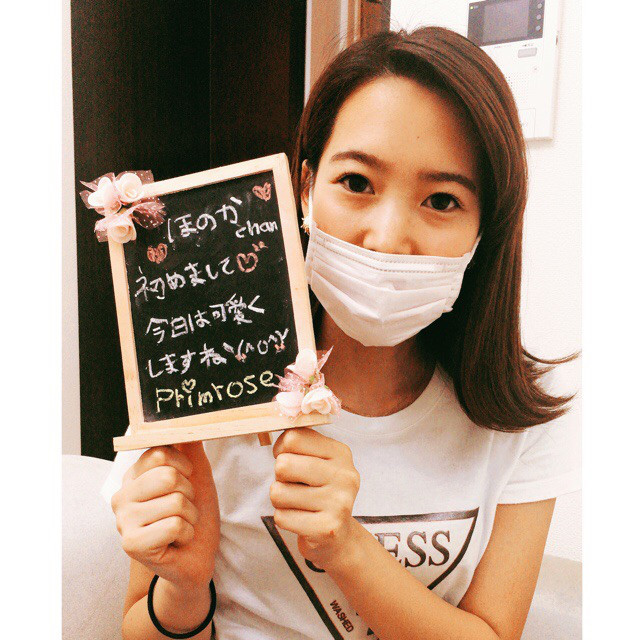 ほのかchan
初めまして
今日は可愛く
しますね\(^o^)/
primrose
GUESS
WASHED